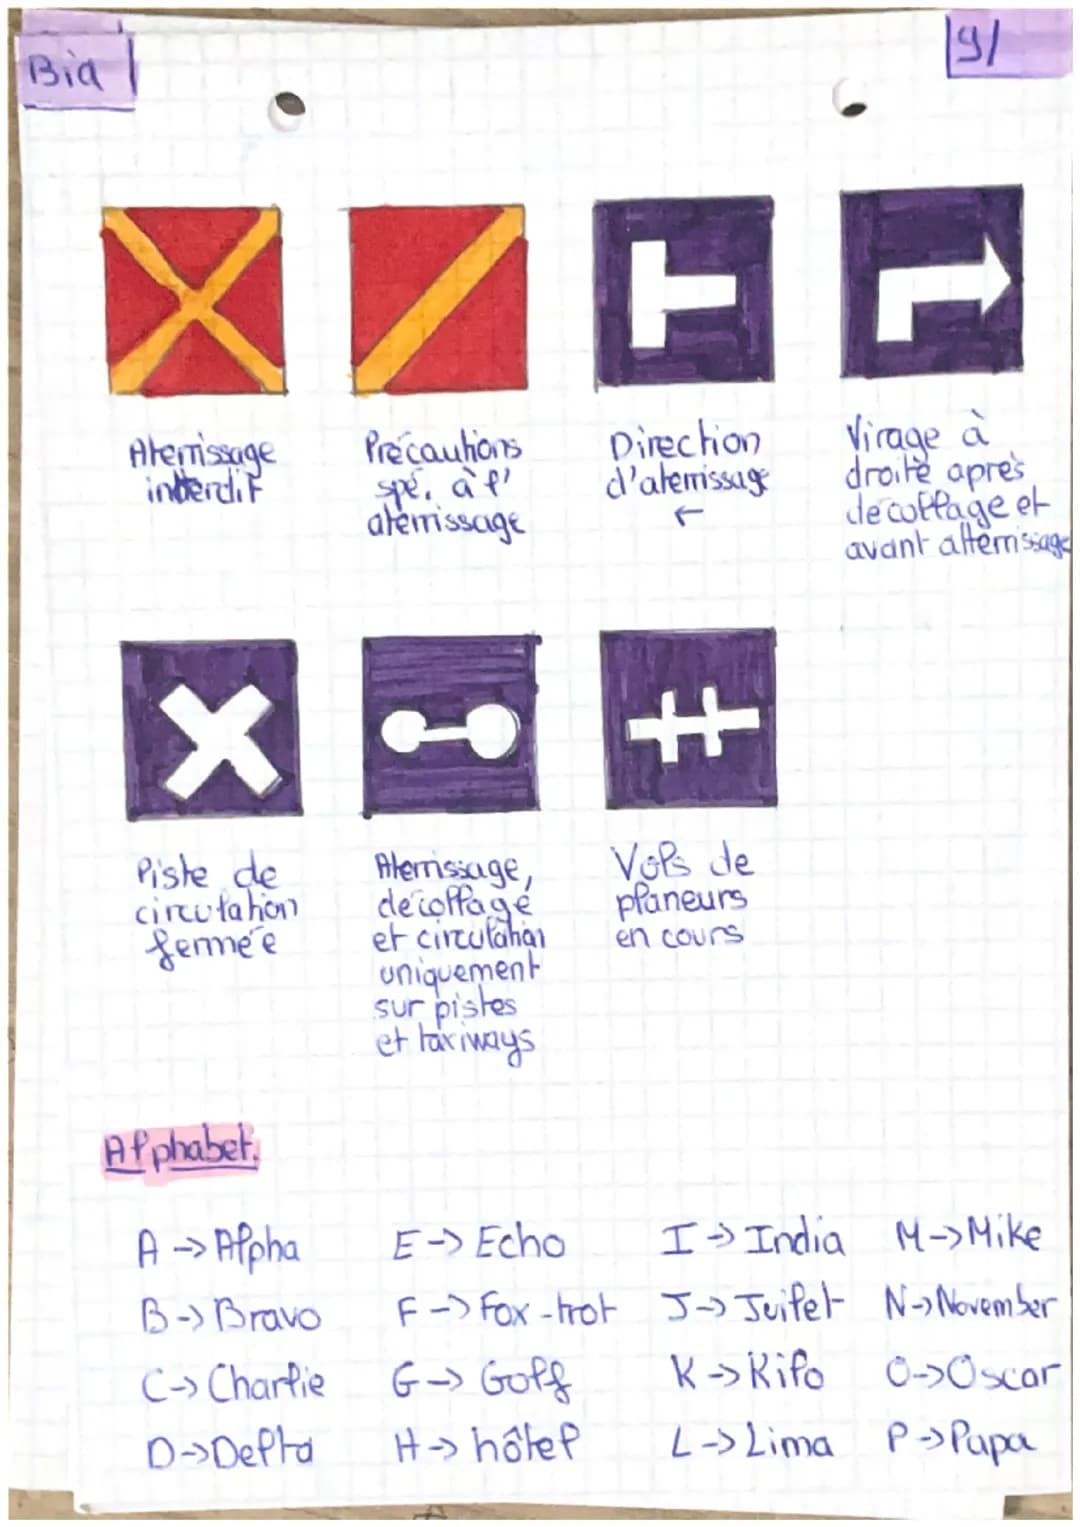 Bia
9/
Aterrissage
interdit
Précautions
spé. à l'
aterrissage
Direction
d'aterrissage
←
Virage à
droite après
décollage et
avant atterrissage
Piste de
circulation
fermée
Aterrissage,
décollage
et circulation
uniquement
sur pistes
et taxiways
Vols de
planeurs
en cours
Alphabet.
A -> Alpha
E -> Echo
I -> India
M -> Mike
B -> Bravo
F -> Fox-trot
J -> Juilet
N -> November
C -> Charlie
G -> Golf
K -> Kilo
O -> Oscar
D -> Delta
H -> hôtel
L -> Lima
P -> Papa